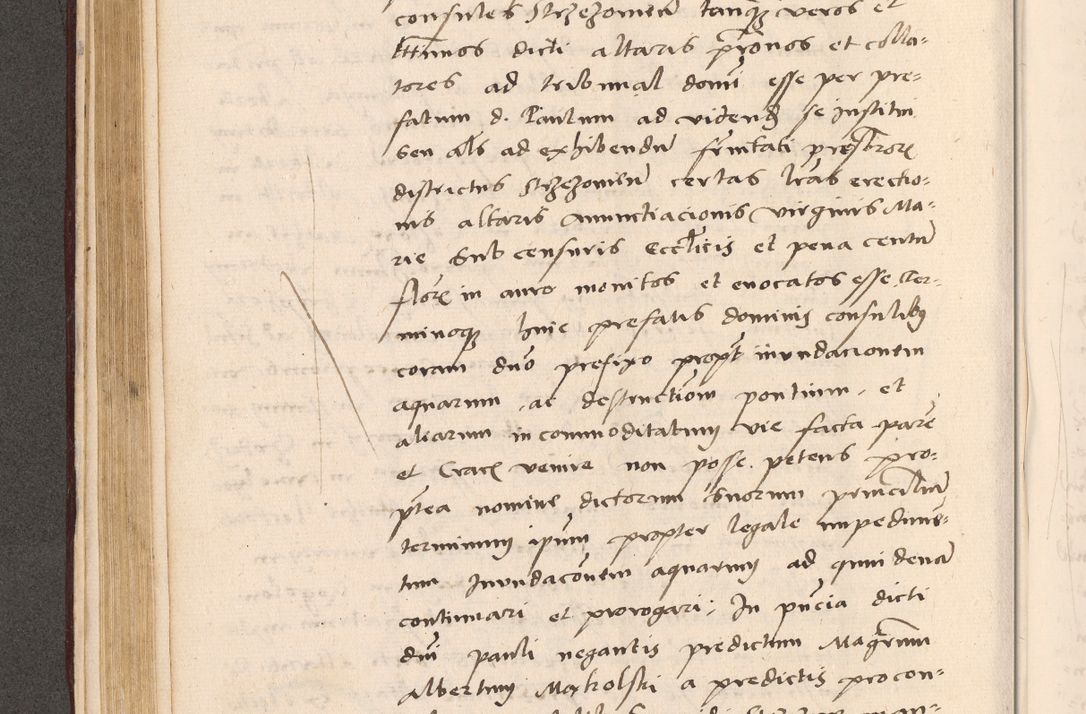 consules Strzegomien tanq̃ veros et
lttimos dicti altaris pr̃onos et colla-
tores ad tribunal domi esse per pre-
fatum d. Paulum ad videnđ se institui
seu als ad exhibendũ
districtus Strzegomien certas lr̃as erectio-
nis altaris Annunctiacionis virginis Ma-
rie sub censuris Eccl̃icis et pena centũ
flor̃ in auro monitos et evocatos esse, Ter-
minoq huic prefatis dominis consulibus
coram dño prefixo propt̃ inundacionem
aquarum, ac destructiõm pontium, et
aliarum incommoditatum vie facta parẽ
et Crac̃ venire non posse. petens pro-
pt̃ea nomine dictorum suorum principaliũ
terminum ipsũm propter legale impedimẽ-
tum Inundacõnem aquarum ad quindenã
continuari et prorogari; In pñcia dicti
dñi Pauli negantis predictum Magr̃um
Albertum Mokolski a predictis procon-